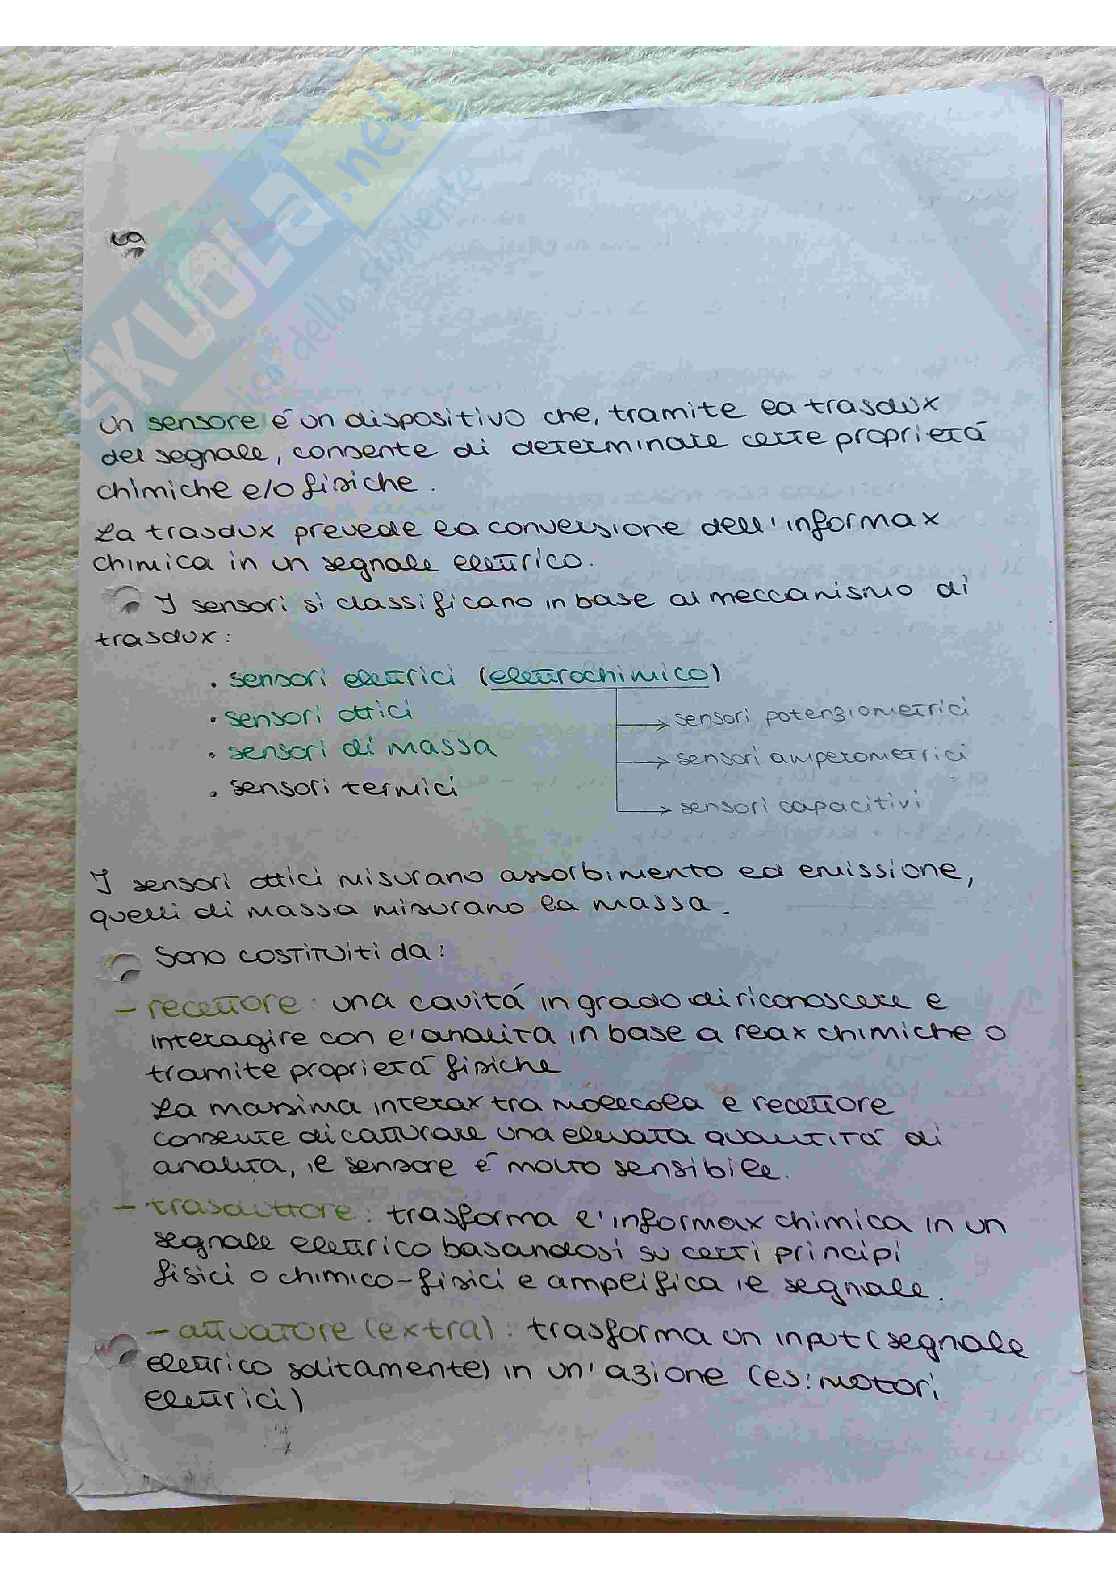 SKUOLA.net
dello studente
Un sensore é un dispositivo che, tramite la trasdux
del segnale, consente di determinare certe proprietá
chimiche e/o fisiche.
La trasdux prevede la conversione dell'informax
chimica in un segnale elettrico.
I sensori si classificano in base al meccanismo di
trasdux:
• sensori elettrici (elettrochimico)
• sensori ottici
→ sensori potenziometrici
• sensori di massa
→ sensori amperometrici
• sensori termici
→ sensori capacitivi
I sensori ottici misurano assorbimento ed emissione,
quelli di massa misurano la massa.
Sono costituiti da:
- recettore: una cavitá in grado di riconoscere e
interagire con l'analita in base a reax chimiche o
tramite proprietá fisiche
La massima interax tra molecola e recettore
consente di catturare una elevata quantitá di
analita, il sensore é molto sensibile.
- trasduttore: trasforma l'informax chimica in un
segnale elettrico basandosi su certi principi
fisici o chimico-fisici e amplifica il segnale.
- attuatore (extra): trasforma un input (segnale
elettrico solitamente) in un'azione (es: motori
elettrici)